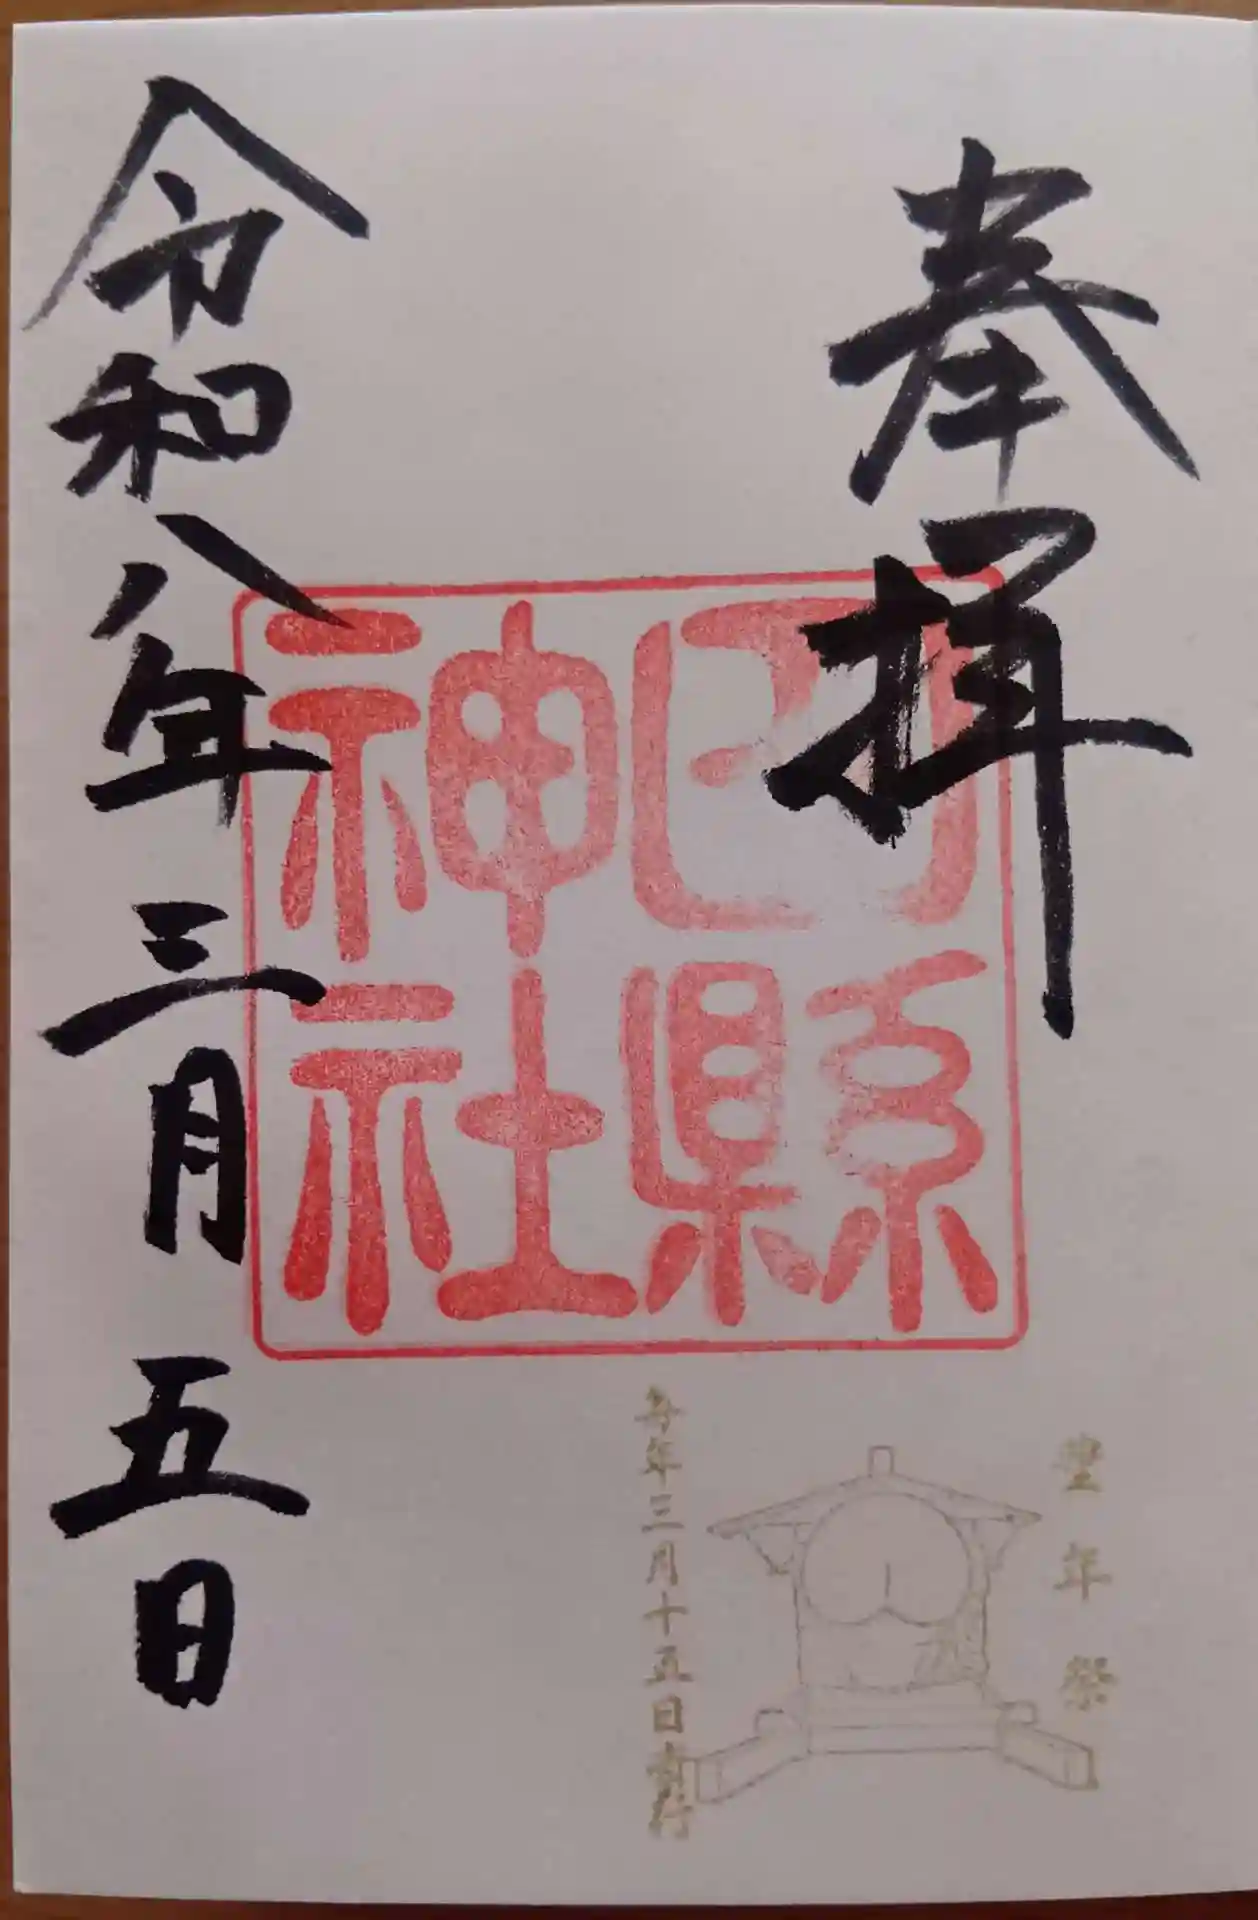 奉拝
田縣
神社
豊年祭
毎年三月十五日斎行
令和八年三月五日